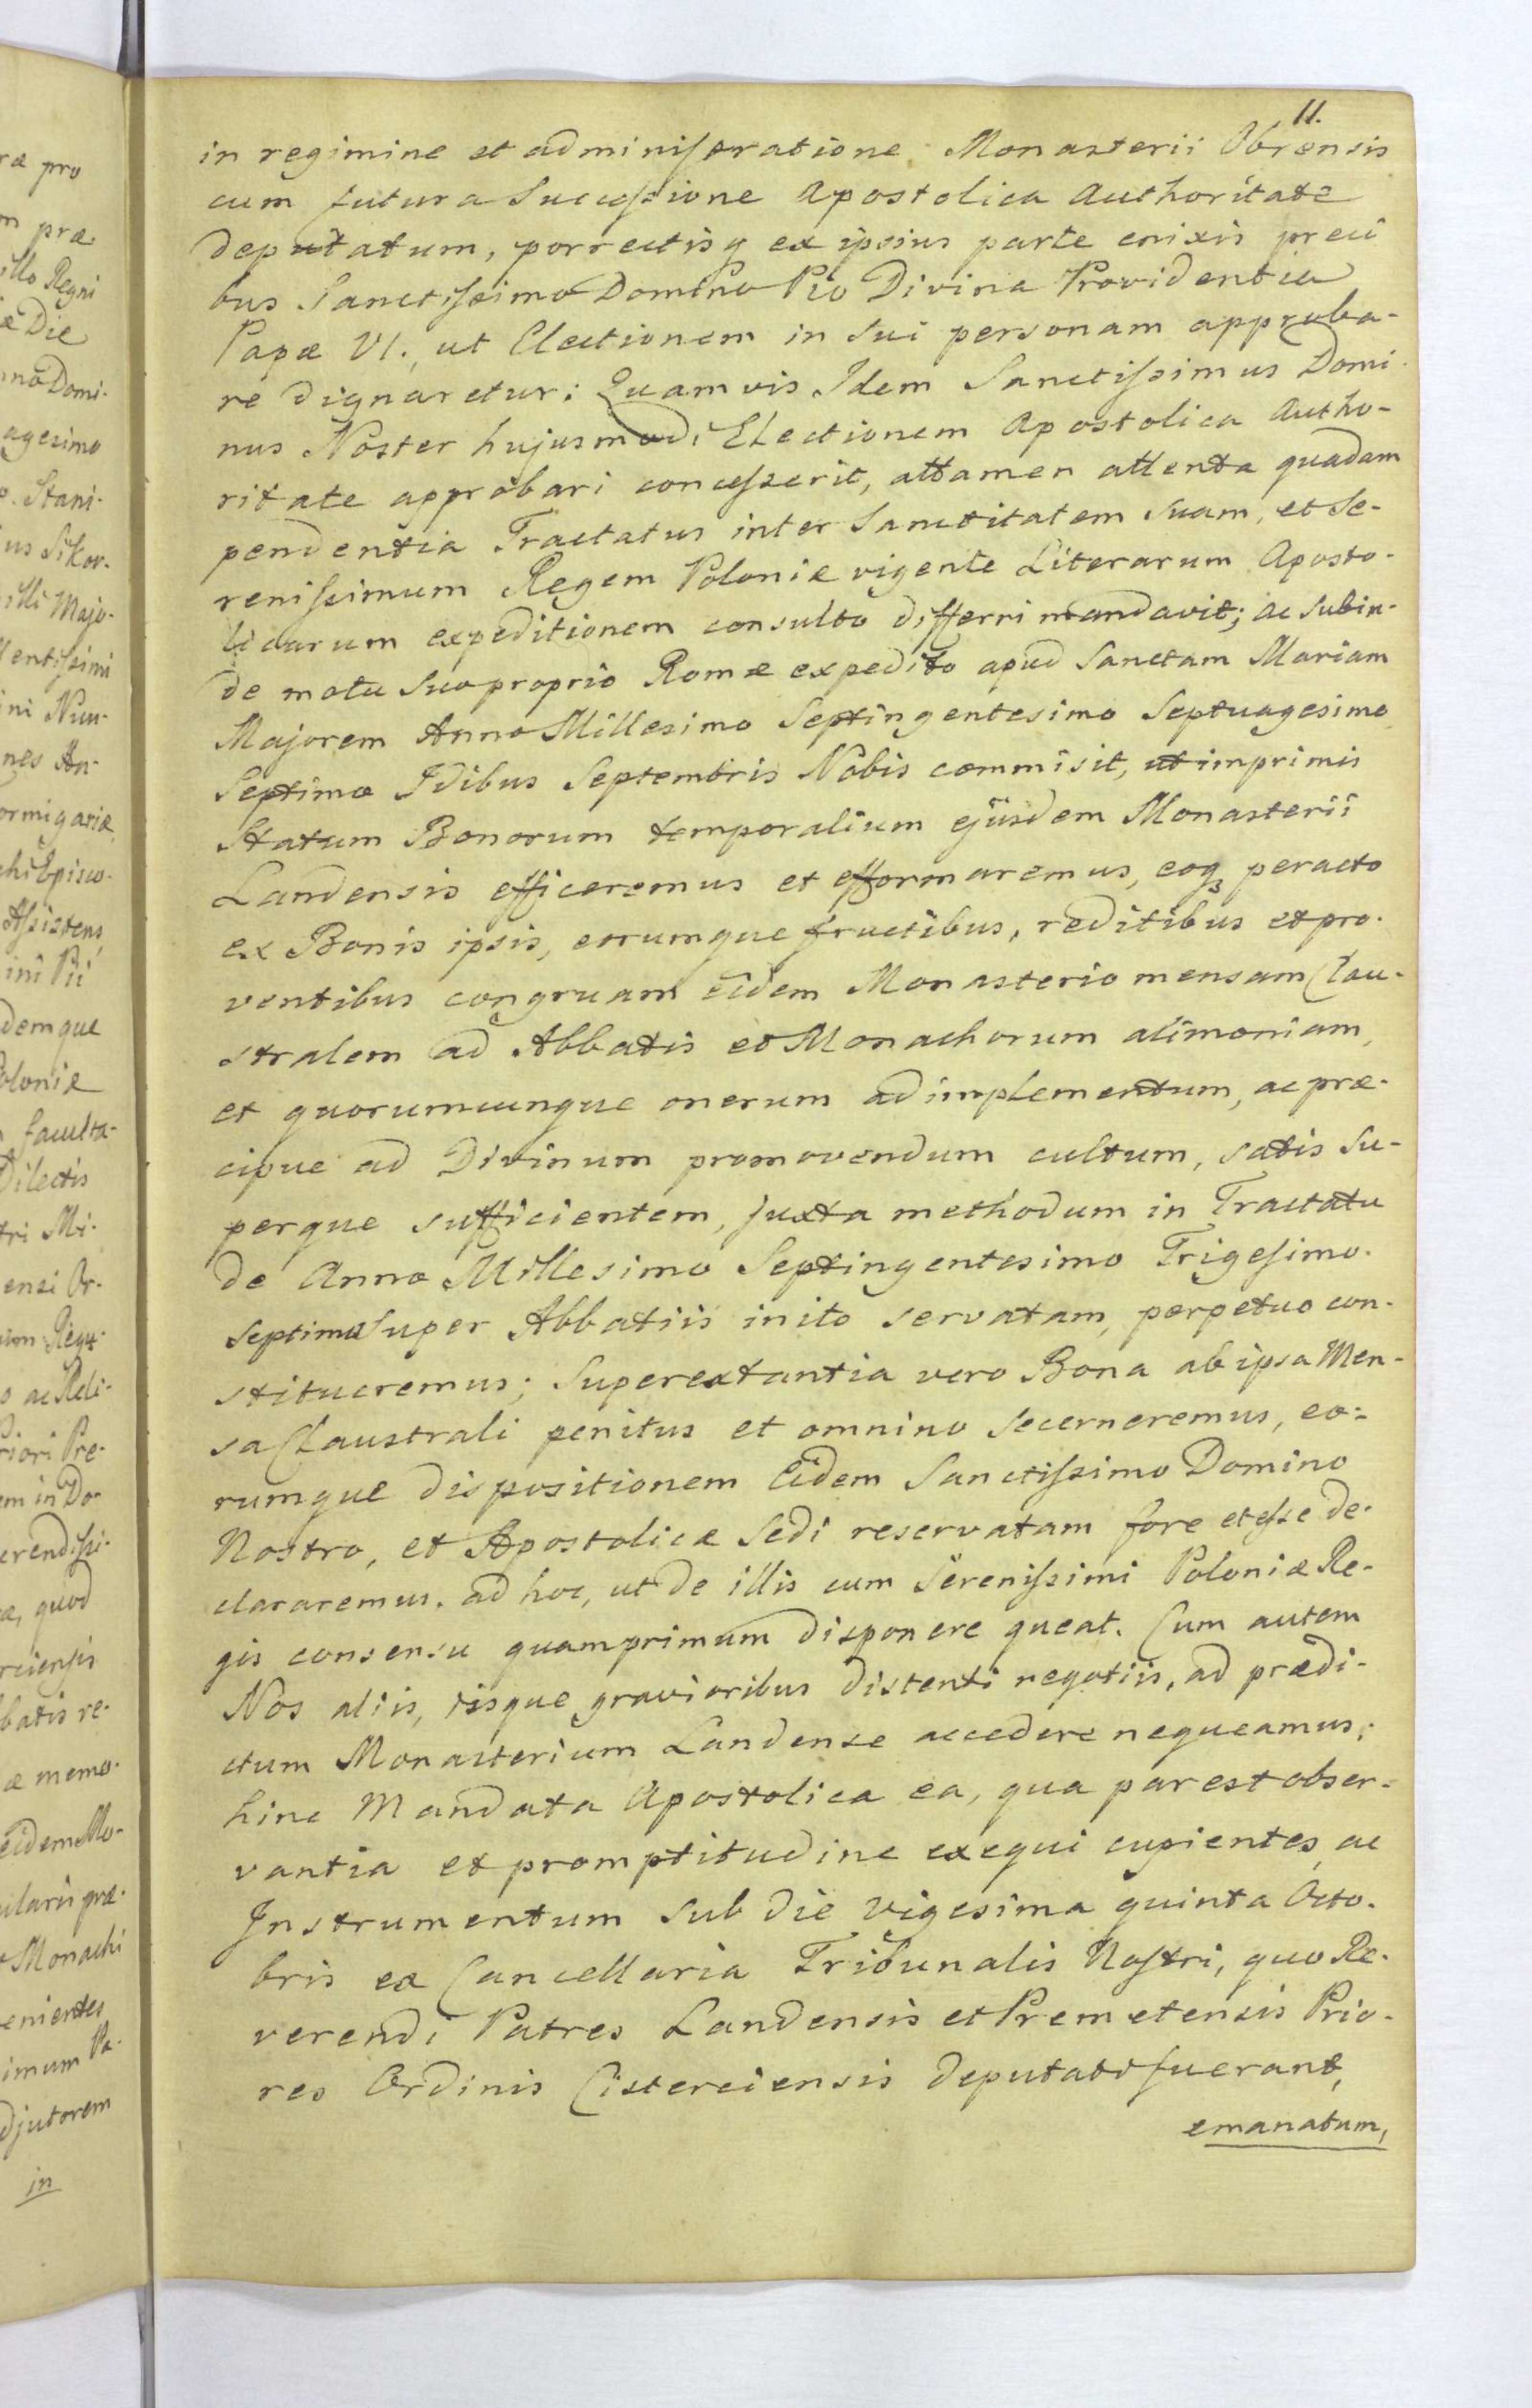 11.
in regimine et administratione Monasterii Obrensis
cum futura Successione Apostolica Authoritate
deputatum, porrectisq ex ipsius parte enixis preci
bus Sanctissimo Domino Pio Divina Providentia
Papæ VI., ut Electionem in Sui personam approba-
re dignaretur: Quamvis Idem Sanctissimus Domi-
nus Noster hujusmodi Electionem Apostolica Autho-
ritate approbari concesserit, attamen attenta quadam
pendentia Tractatus inter Sanctitatem Suam, et Se-
renissimum Regem Poloniæ vigente Literarum Aposto-
licarum expeditionem consulto differri mandavit; ac subin-
de motu Suo proprio Romæ expedito apud Sanctam Mariam
Majorem Anno Millesimo Septingentesimo Septuagesimo
Septimo Idibus Septembris Nobis commisit, ut imprimis
Statum Bonorum temporalium ejusdem Monasterii
Landensis efficeremus et efformaremus, eoq peracto
ex Bonis ipsis, eorumque fructibus, reditibus et pro-
ventibus congruam eidem Monasterio mensam Clau-
stralem ad Abbatis et Monachorum alimoniam,
et quorumcunque onerum adimplementum, ac præ-
cipue ad Divinum promovendum cultum, satis su-
perque sufficientem, juxta methodum in Tractatu
de Anno Millesimo Septingentesimo Trigesimo-
septimo super Abbatiis inito servatam, perpetuo con-
stitueremus; Superextantia vero Bona ab ipsa Men-
sa Claustrali penitus et omnino secerneremus, eo-
rumque dispositionem Eidem Sanctissimo Domino
Nostro, et Apostolicæ Sedi reservatam fore et esse de-
clararemus. ad hoc, ut de illis cum Serenissimi Poloniæ Re-
gis consensu quamprimum disponere queat. Cum autem
Nos aliis, iisque gravioribus distenti negotiis, ad prædi-
ctum Monasterium Landense accedere nequeamus;
hinc Mandata Apostolica ea, qua par est obser-
vantia et promptitudine exequi cupientes, ac
Instrumentum sub die Vigesima quinta Octo-
bris ex Cancellaria Tribunalis Nostri, quo Re-
verendi Patres Landensis et Premetensis Prio-
res Ordinis Cisterciensis deputati fuerant,
emanatum,